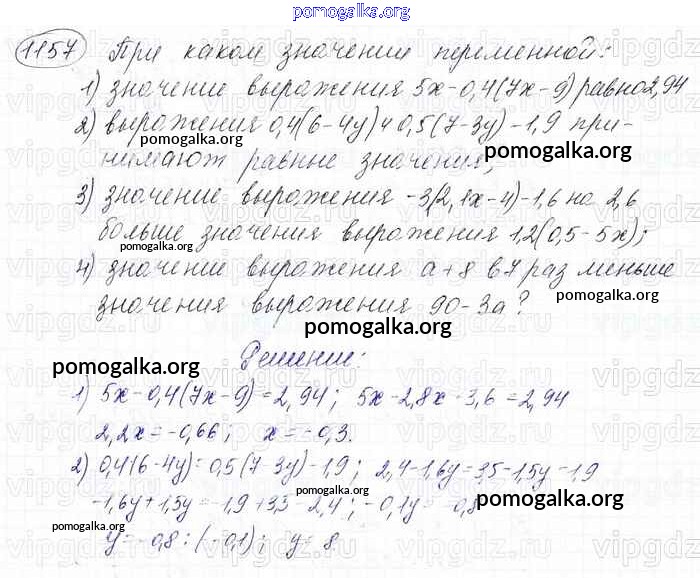 pomogalka.org
1157 При каком значении переменной:
1) значение выражения 5x-0,4(7x-9) равно 2,94
2) выражения 0,4(6-4y) и 0,5(7-3y)-1,9 при-
нимают равные значения;
pomogalka.org
3) значение выражения -3(2,1x-4)-1,6 на 2,6
больше значения выражения 1,2(0,5-5x);
pomogalka.org
4) значение выражения a+8 в 7 раз меньше
значения выражения 90-3a?
pomogalka.org
pomogalka.org
Решение:
pomogalka.org
1) 5x-0,4(7x-9)=2,94; 5x-2,8x+3,6=2,94
2,2x=-0,66; x=-0,3.
2) 0,4(6-4y)=0,5(7-3y)-1,9; 2,4-1,6y=3,5-1,5y-1,9
-1,6y+1,5y=-1,9+3,5-2,4; -0,1y=-0,8
pomogalka.org
pomogalka.org
pomogalka.org
y=-0,8:(-0,1); y=8